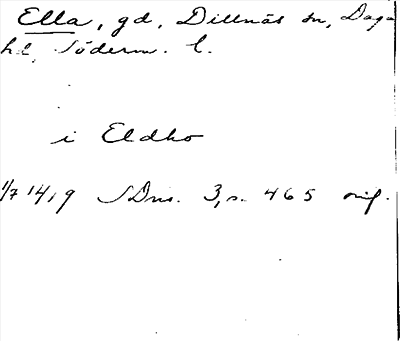 Ella, gd, Dillnäs sn, Daga
hd, Söderm. l.
i Eldho
1/7 1419 SDns. 3, s. 465 orig.